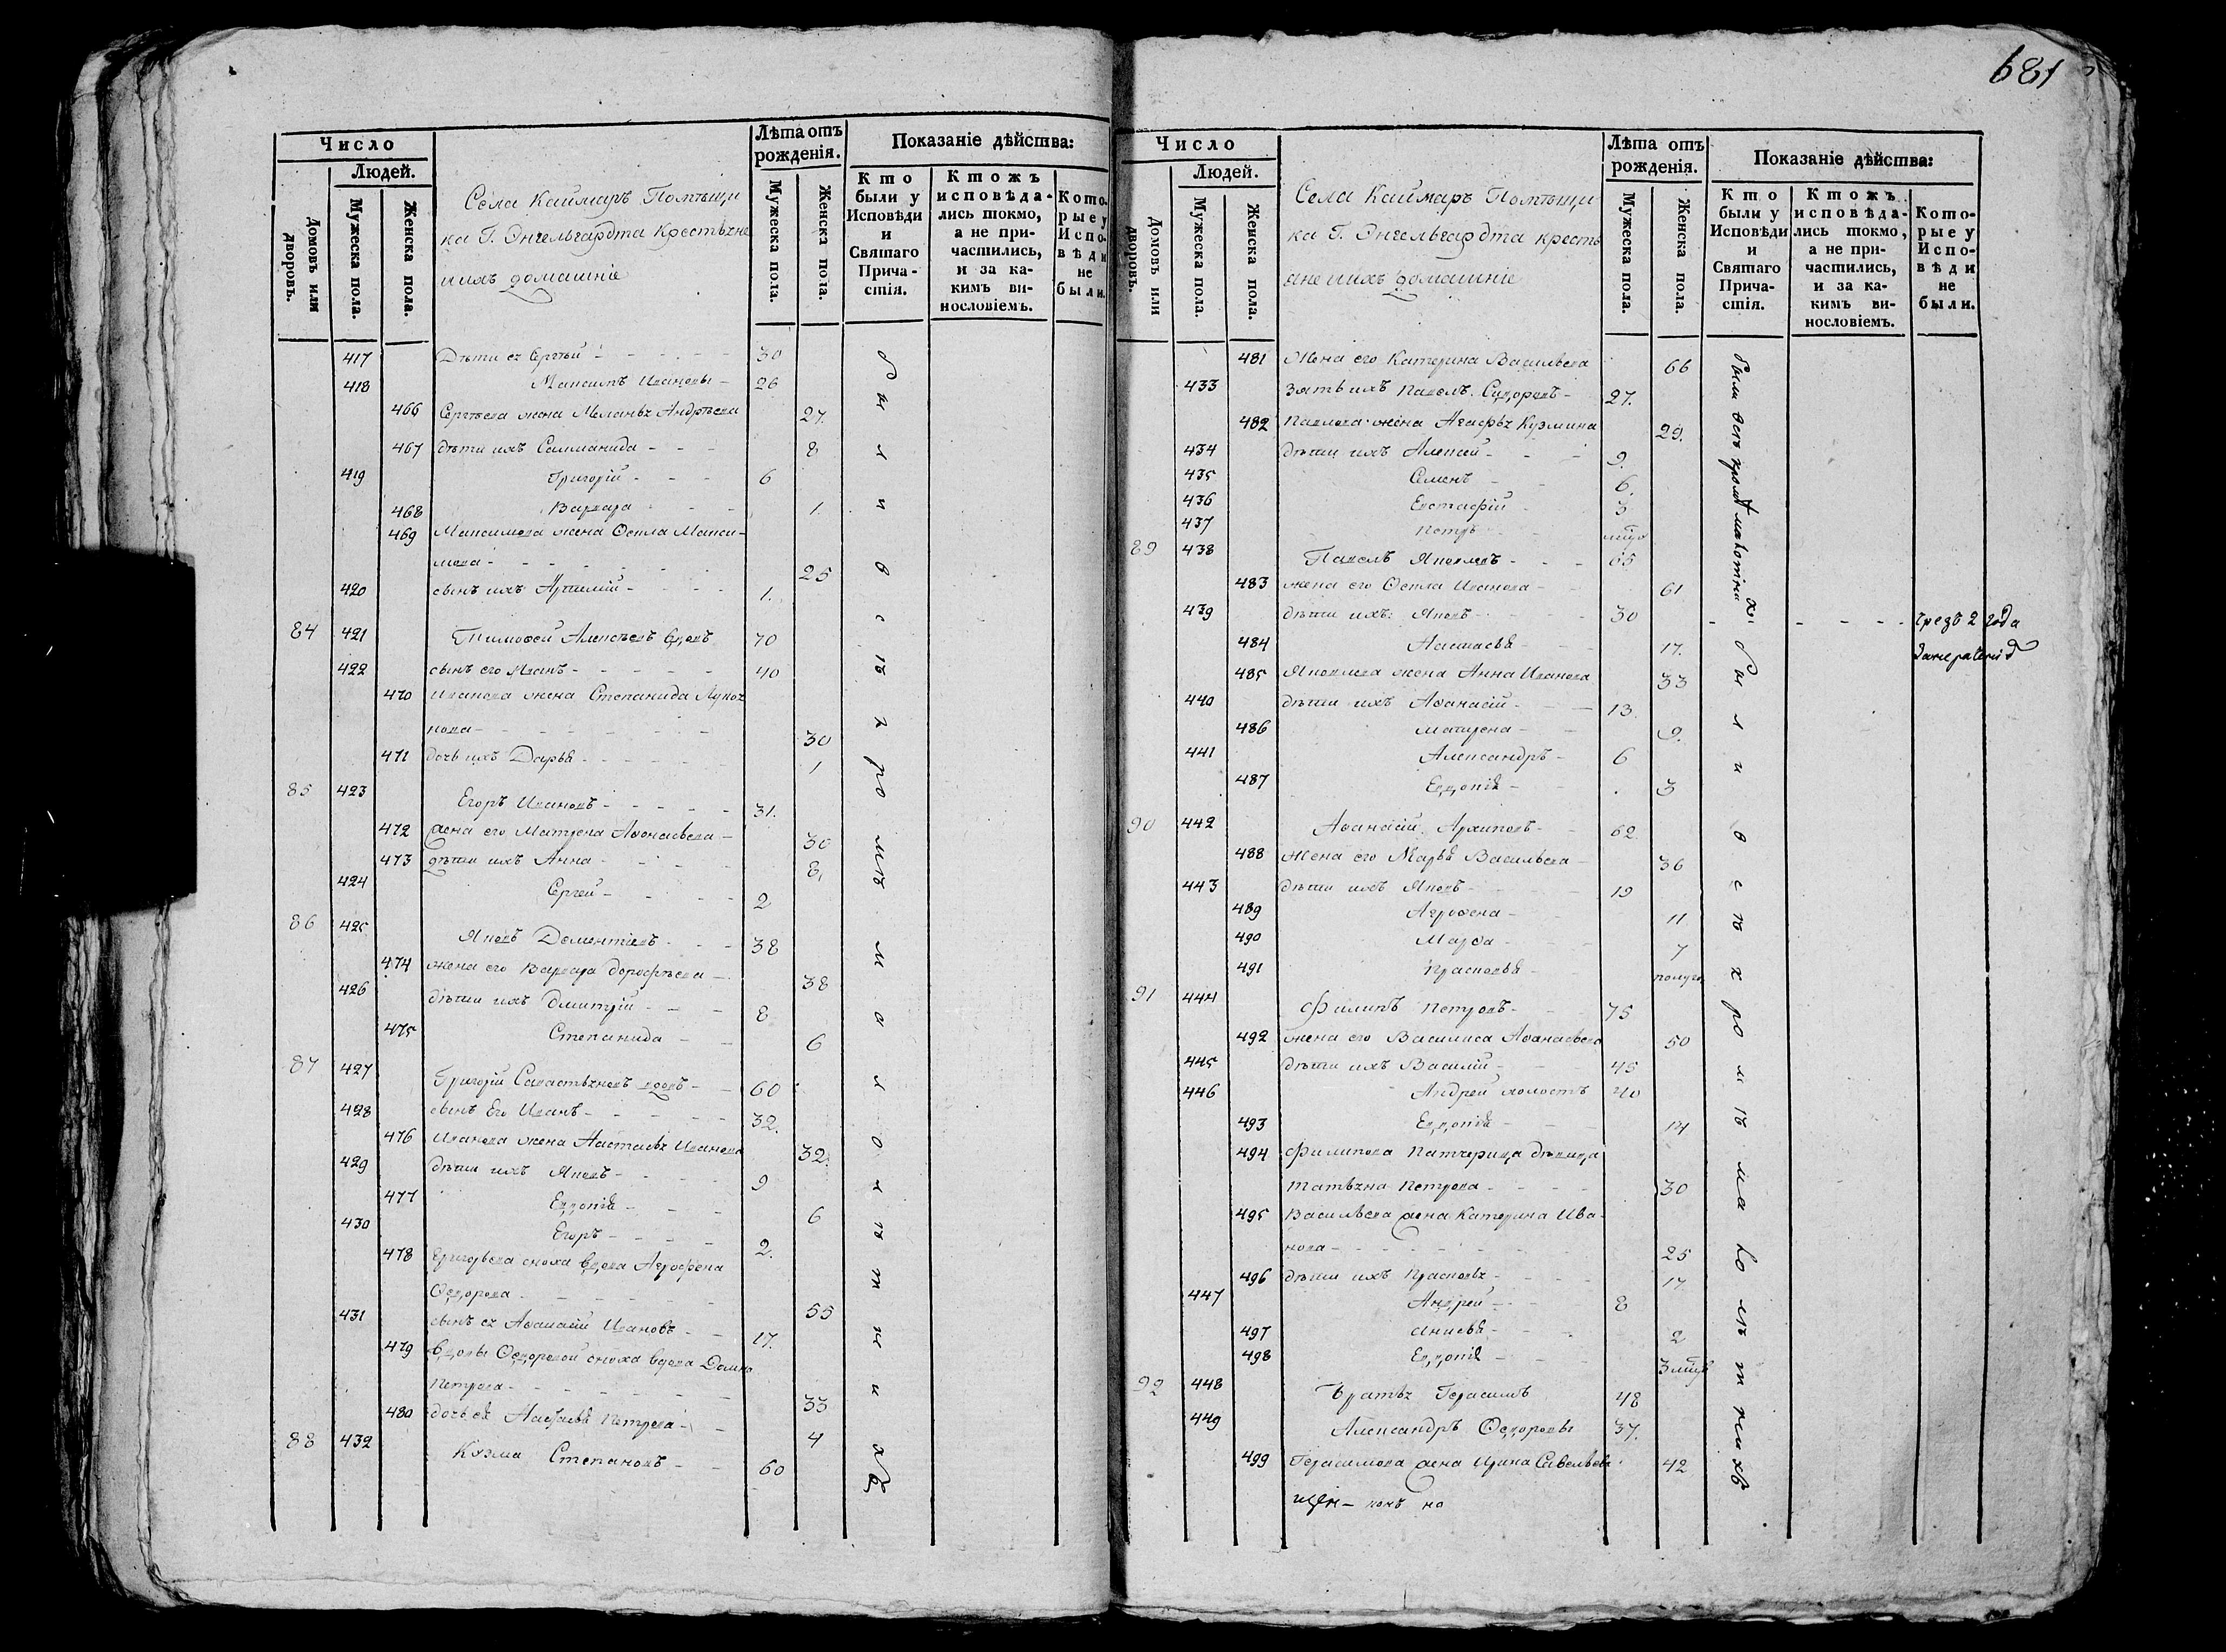 681
Число
Людей.
Домовъ или дворовъ.
Мужеска пола.
Женска пола.
Села Каймаръ Помѣщи
ка Г. Энгельгардта Крестьяне
и ихъ домашніе
Лѣта отъ рожденія.
Мужеска пола.
Женска пола.
Показаніе дѣйства:
Кто были у Исповѣди и Святаго Причастія.
Ктожъ исповѣдались токмо, а не причастились, и за какимъ винословіемъ.
Которые у Исповѣди не были.
417 Дѣти ея Сергѣй - 30
418 Максимъ Ивановы - 26
466 Сергѣева жена Меланья Андрѣева 27.
467 дѣти ихъ Саломанида - 8
419 Григорій - 6
468 Варвара - 1
469 Максимова жена Фекла Макси-
мова - 25
420 сынъ ихъ Артемій - 1.
84 421 Тимофей Алексѣевъ вдовъ 70
422 сынъ его Иванъ - 40
470 Иванова жена Степанида Лукоя
нова - 30
471 дочь ихъ Дарья - 1
85 423 Егоръ Ивановъ - 31.
472 жена его Матрена Афонасьева - 30
473 дѣти ихъ Анна - 8.
424 Сергей - 2
86 425 Яковъ Дементіевъ - 38
474 жена его Варвара дорофѣева - 38
426 дѣти ихъ Дмитрій - 8
475 Степанида - 6
87 427 Григорій Савастьяновъ вдовъ - 60
428 сынъ Его Иванъ - 32.
476 Иванова жена Настасья Иванова 32.
429 дѣти ихъ Яковъ - 9
477 Евдокія - 6
430 Егоръ - 2.
478 Григорьева сноха вдова Агрофена
Федорова - 55
431 сынъ ея Афанасій Ивановъ - 17.
479 вдовы Федоровой сноха вдова Домна
Петрова - 33
480 дочь ея Настасья Петрова - 4
88 432 Кузма Степановъ - 60
были всѣ кромѣ малолѣтнихъ
Число
Людей.
Домовъ или дворовъ.
Мужеска пола.
Женска пола.
Села Каймаръ Помѣщи
ка Г. Энгельгардта кресть
яне и ихъ домашніе
Лѣта отъ рожденія.
Мужеска пола.
Женска пола.
Показаніе дѣйства:
Кто были у Исповѣди и Святаго Причастія.
Ктожъ исповѣдались токмо, а не причастились, и за какимъ винословіемъ.
Которые у Исповѣди не были.
481 Жена его Катерина Васильева 66
433 Зять ихъ Павелъ Сидоровъ - 27.
482 Павлова жена Агафья Кузмина 29.
434 дѣти ихъ Алексей - 9.
435 Семенъ - 6.
436 Евстафій - 3
437 Петръ
89 438 Павелъ Яковлевъ - 65
483 жена его Фекла Иванова - 61
439 дѣти ихъ: Яковъ - 30 - - - - - чрезъ 2 года
484 Настасья - 17.
485 Яковлева жена Анна Иванова 33
440 дѣти ихъ Афанасій - 13
486 Матрена - 9.
441 Александръ - 6
487 Евдокія - 3
90 442 Афанасій Архиповъ - 62.
488 Жена его Марья Васильева - 36
443 дѣти ихъ Яковъ - 19
489 Агрофена - 11
490 Марфа - 7
491 Прасковья - полуго
91 444 Филипъ Петровъ - 75
492 жена его Василиса Афанасьева 50
445 дѣти ихъ Василій - 45
446 Андрей холостъ 40
493 Евдокія - 14
494 Филипова Патчерица дѣвица
Татьяна Петрова - 30
495 Васильева жена Катерина Ива-
нова - 25
496 дѣти ихъ Прасковья - 17.
447 Андрей - 8
497 Анисья - 2
498 Евдокія - 3 мѣц
92 448 Братья Герасимъ 48
449 Александръ Федоровы 37.
499 Герасимова жена Ирина Савельева 42
были всѣ кромѣ малолѣтнихъ
были всѣ кромѣ малолѣтнихъ